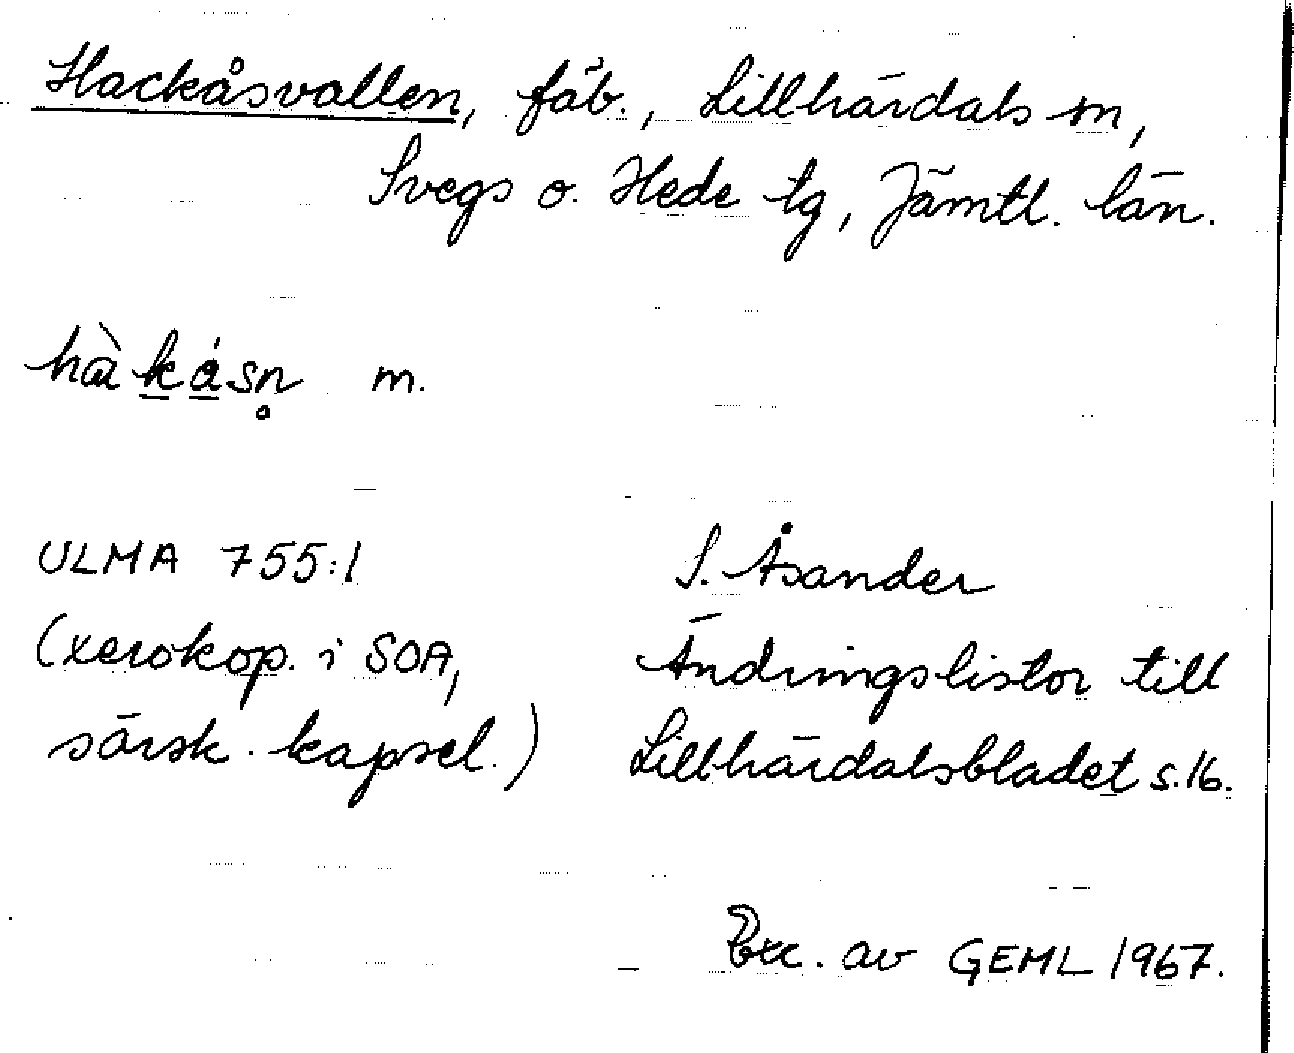 Hackåsvallen, fäb., Lillhärdals sn,
Svegs o. Hede tg, Jämtl. län.
hàkásn̥ m.
ULMA 755:1
(xerokop. i SOA,
särsk. kapsel.)
S. Åsander
Ändringslistor till
Lillhärdalsbladet s.16.
Exc. av GEML 1967.